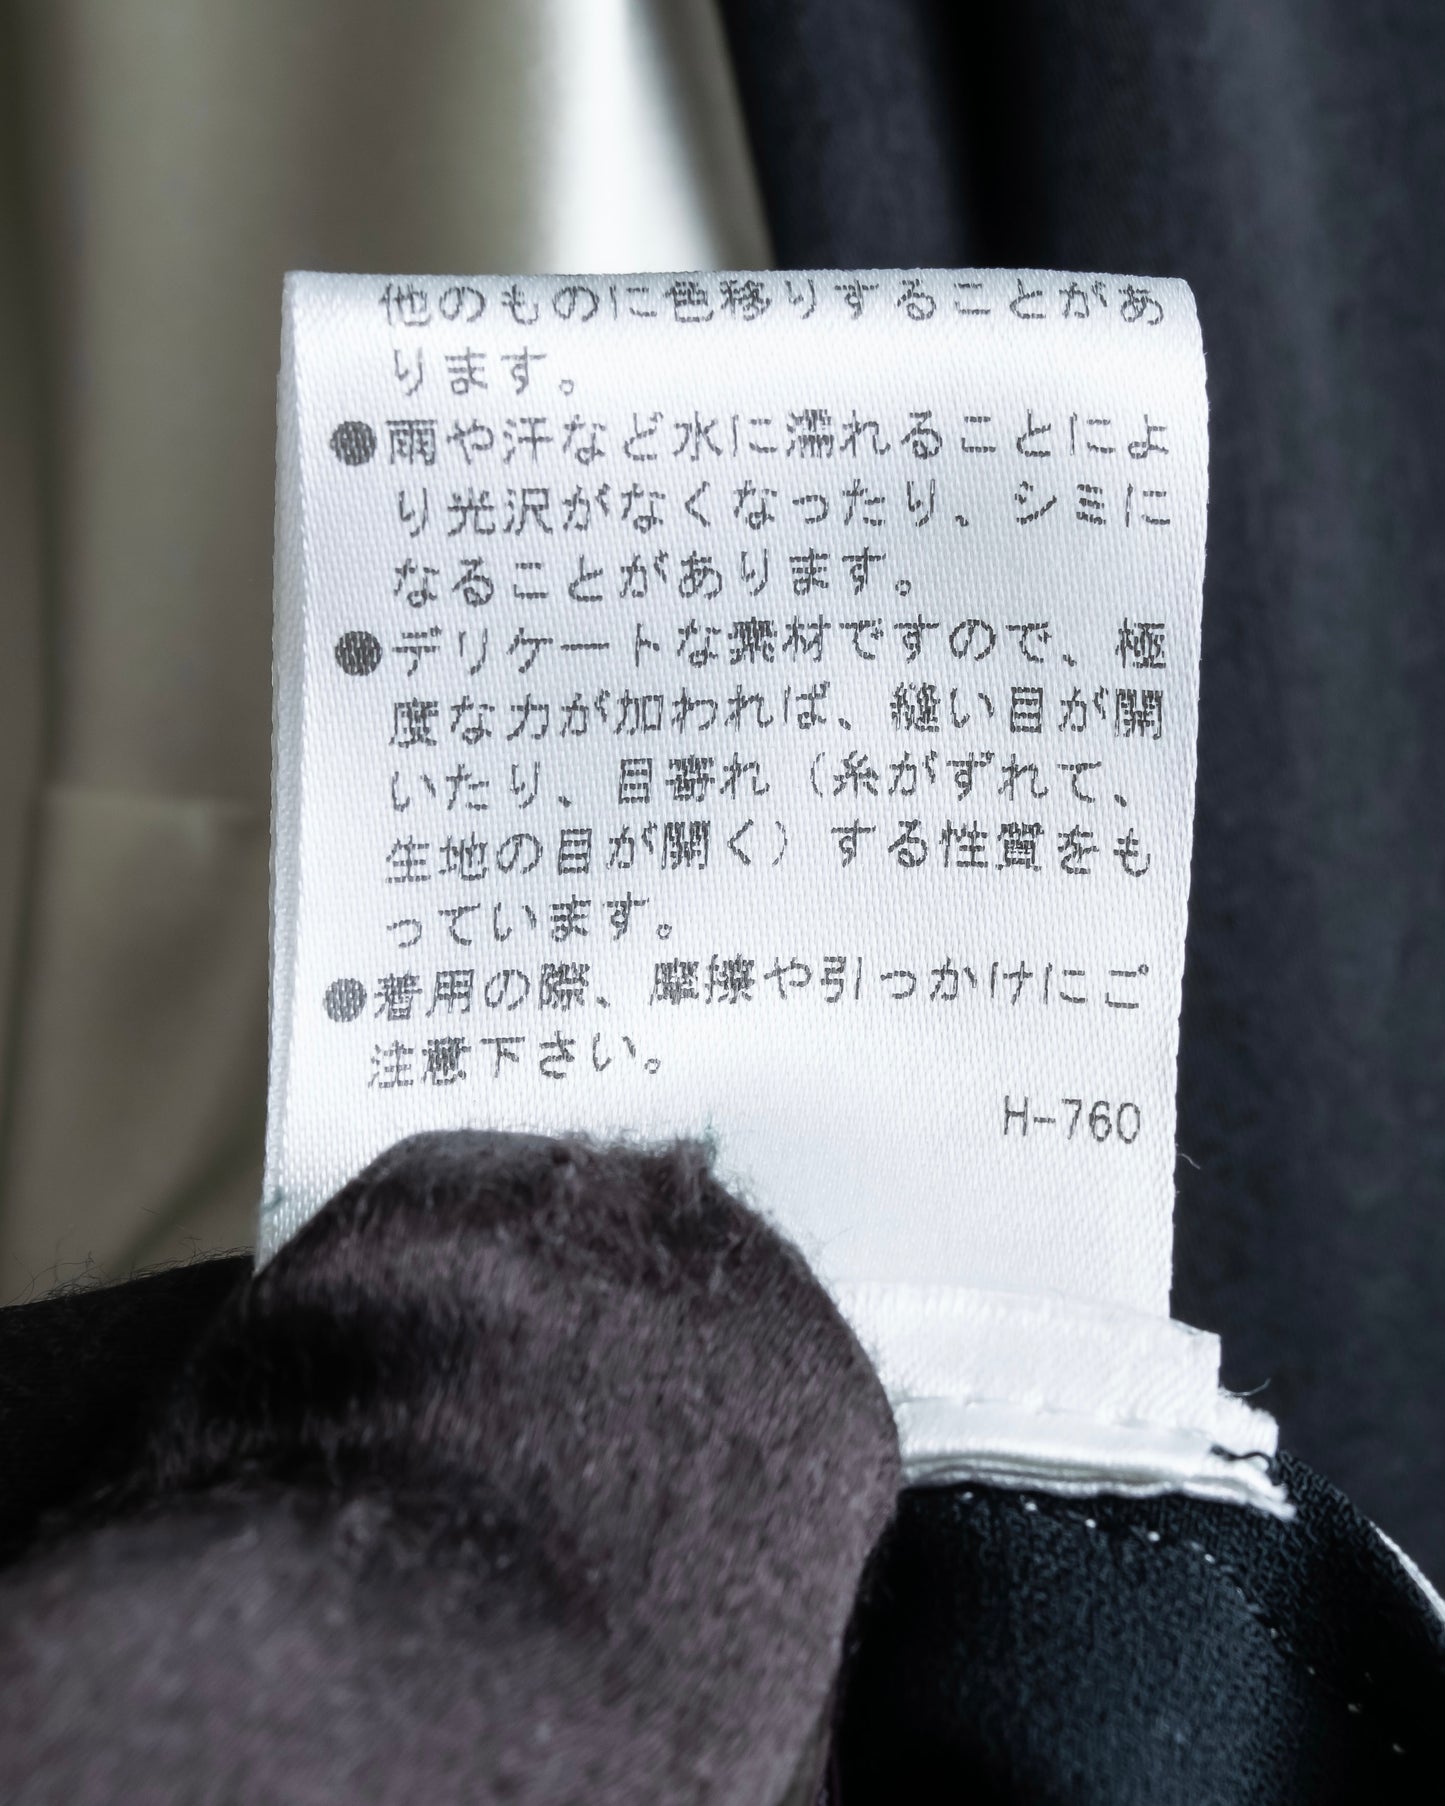 他のものに色移りすることがあ
ります。
●雨や汗など水に濡れることによ
り光沢がなくなったり、シミに
なることがあります。
●デリケートな素材ですので、極
度な力が加われば、縫い目が開
いたり、目寄れ(糸がずれて、
生地の目が開く)する性質をも
っています。
●着用の際、摩擦や引っかけにご
注意下さい。
H-760